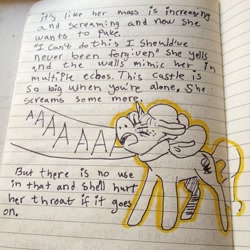 it's like her mass is increasing
and screaming and now she
wants to puke.
"I can't do this I should've
never been forgiven" She yells
and the walls mimic her in
multiple echos. This castle is
so big when you're alone. She
screams some more.
AAAAAA
But there is no use
in that and she'll hurt
her throat if it goes
on.